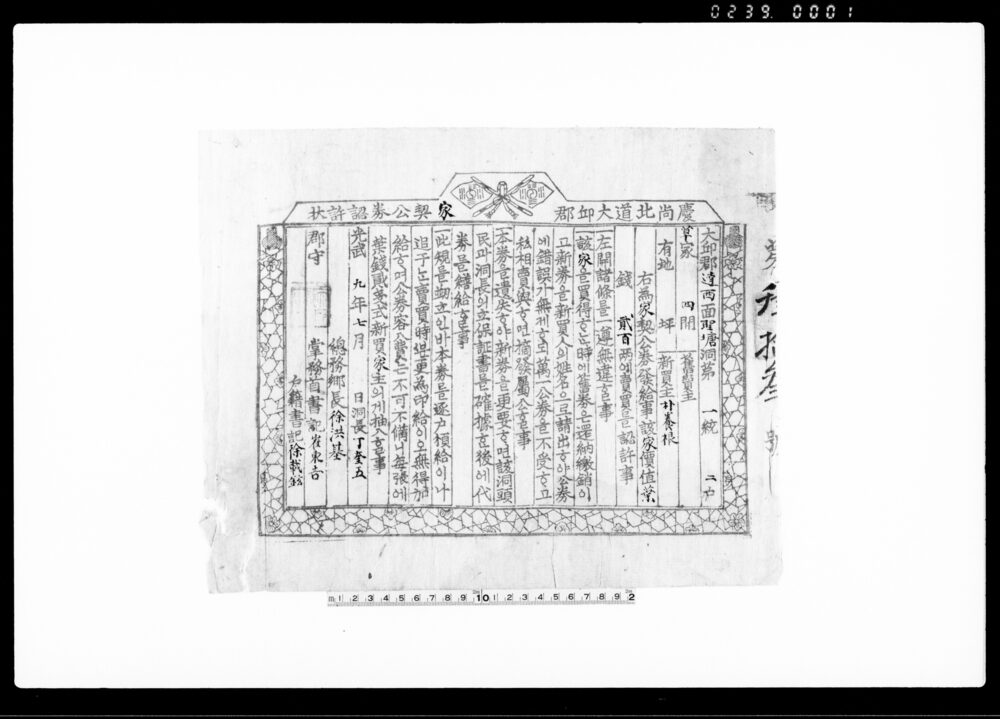 0239. 0001
慶尚北道大邱郡
家契公券認許狀
大邱郡達西面聖塘洞第 一統 二戶
家 四間 舊賣主
有地 坪 新買主 朴養根
右爲家契公券發給事該家價值葉
錢 貳百 兩에賣買を認許事
左開諸條를一遵無違할事
一該家를買得하는時에舊券은還納繳銷이
고新券을新買人의姓名으로請出하야公券
에錯誤가無게하되萬一公券을不受하고
私相賣與하면摘發屬公할事
一本券을遺失하야新券을更要하면該洞頭
民과洞長의立保証書를確據한後에代
券을繕給할事
一此規를刱立인바本券을逐戶頒給이나
追于는賣買時만更爲印給이오無得加
給하며公券容入費는不可不備니每張에
葉錢貳戔式新買家主의게抽入할事
光武 九年七月 日洞長丁奎五
總務鄉長徐洪基
郡守 掌務首書記崔東吉
戶籍書記徐載
第 拾 號
m 1 2 3 4 5 6 7 8 9 10 1 2 3 4 5 6 7 8 9 2